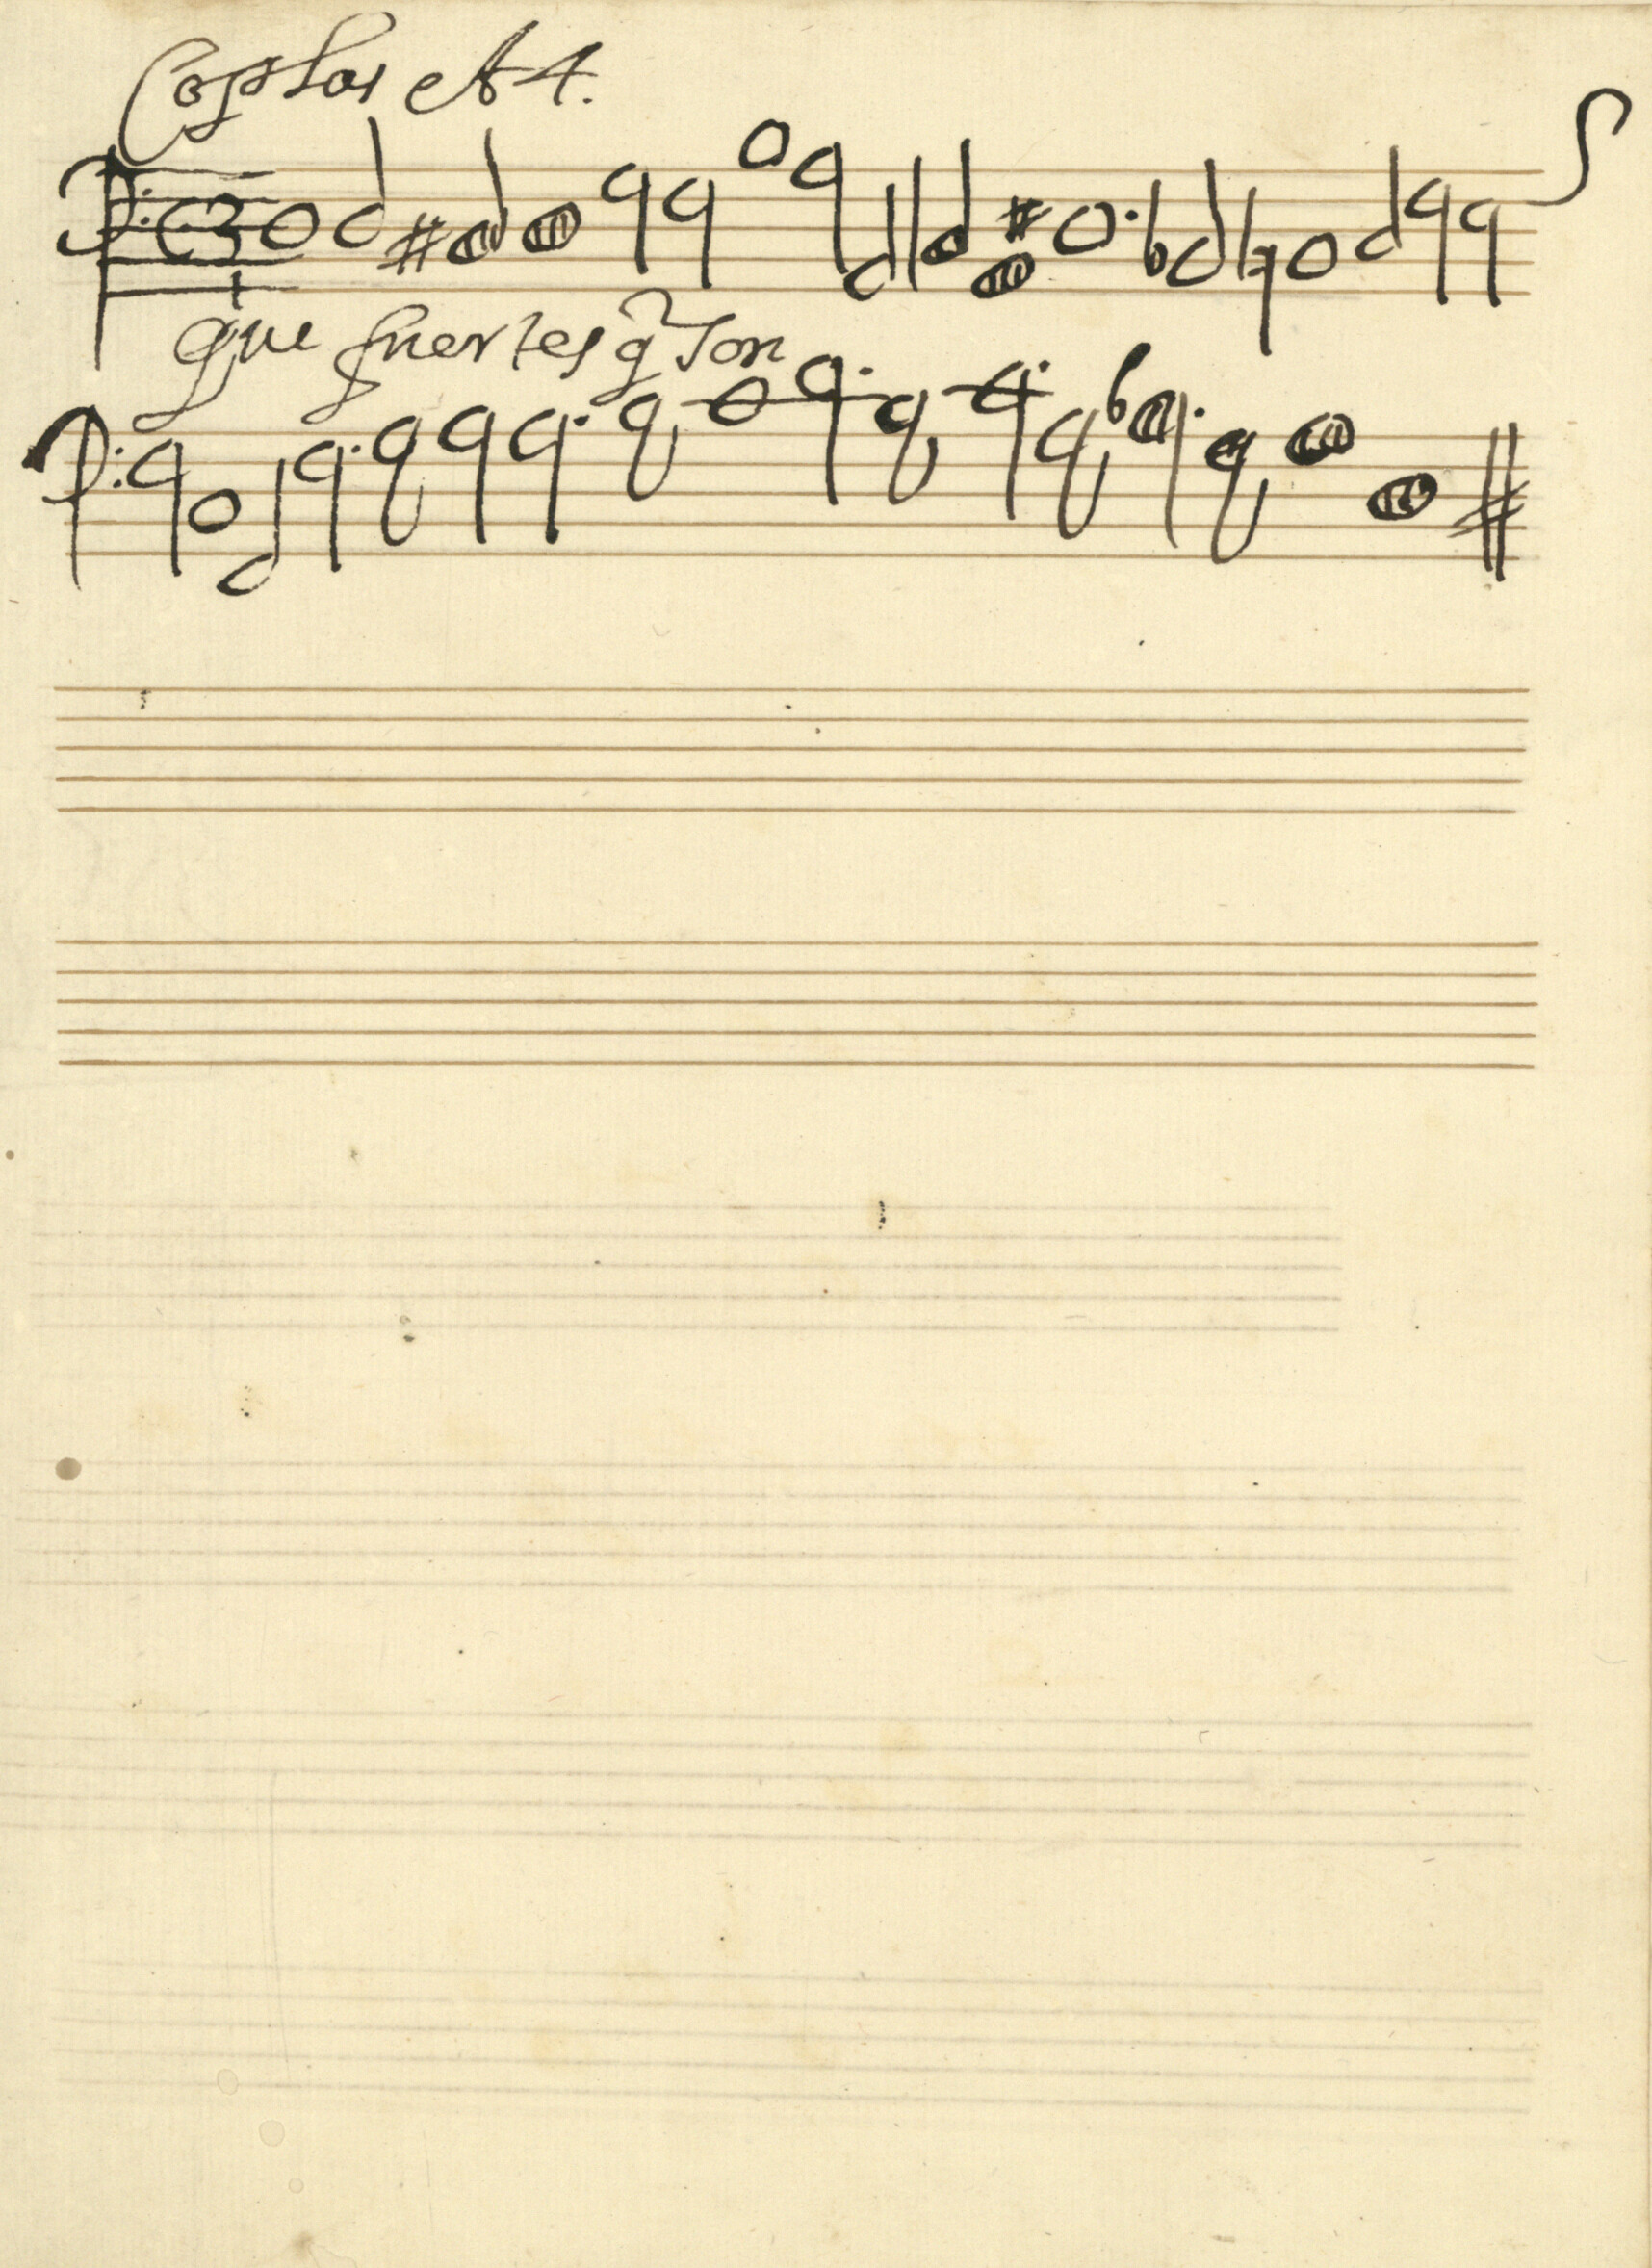 Coplas A 4.
que fuertes q̃ son